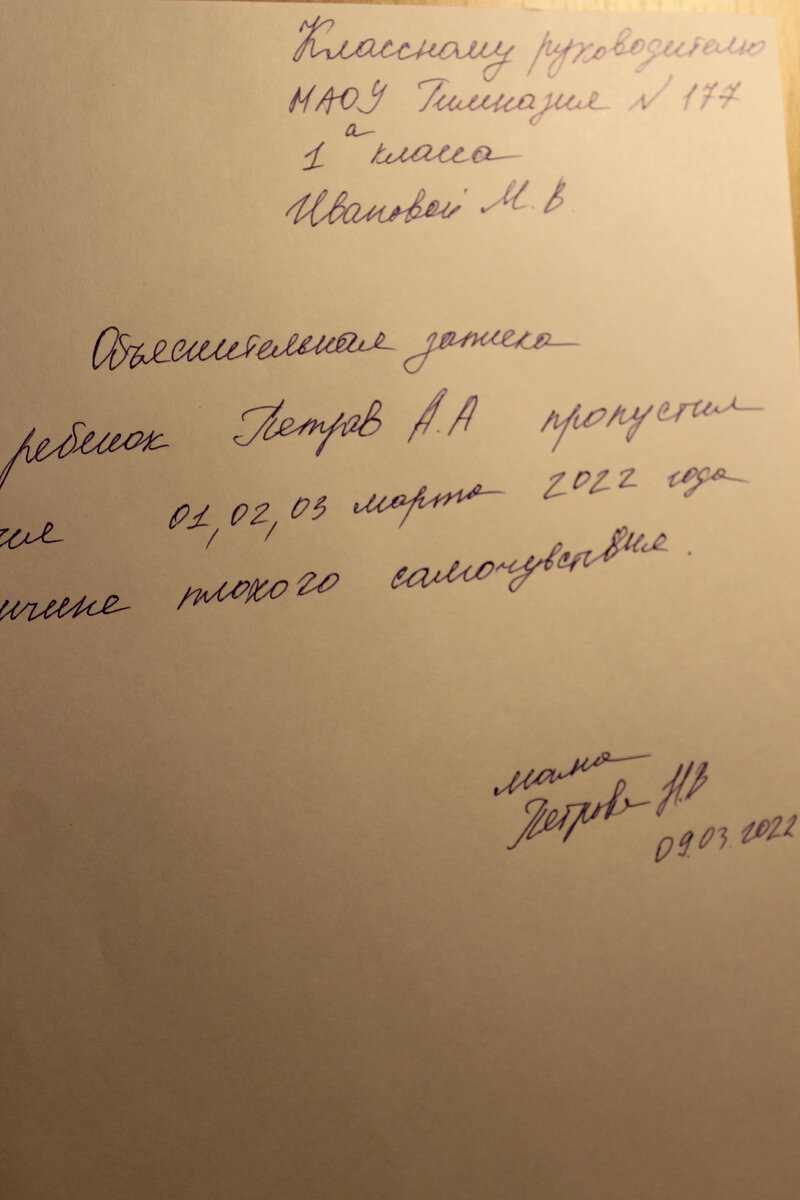 Классному руководителю
МАОУ Гимназия № 177
1а класса
Ивановой М. В.
Объяснительная записка
ребенок Петров А.А пропустил
01, 02, 03 марта 2022 года
плохого самочувствия.
мама
Петрова Н.В
09.03.2022